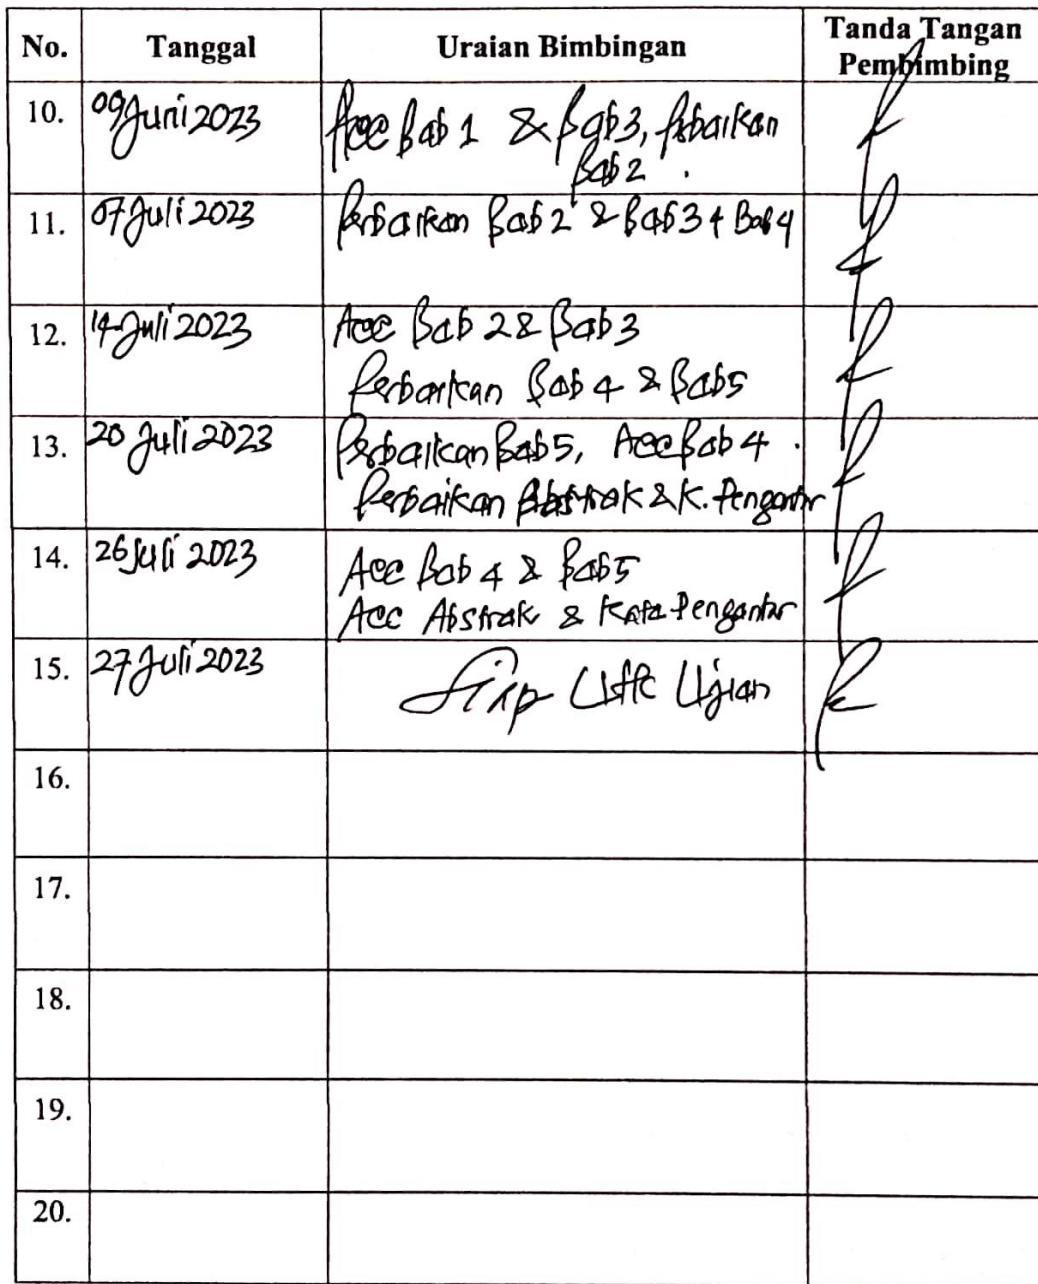 No. Tanggal Uraian Bimbingan Tanda Tangan
Pembimbing
10. 09 Juni 2023 Acc Bab 1 & Bab 3, Perbaikan
Bab 2.
11. 07 Juli 2023 Perbaikan Bab 2 & Bab 3 + Bab 4
12. 14 Juli 2023 Acc Bab 2 & Bab 3
Perbaikan Bab 4 & Bab 5
13. 20 Juli 2023 Perbaikan Bab 5, Acc Bab 4.
Perbaikan Abstrak & K. Pengantar
14. 26 Juli 2023 Acc Bab 4 & Bab 5
Acc Abstrak & Kata Pengantar
15. 27 Juli 2023 Siap Ujian
16.
17.
18.
19.
20.